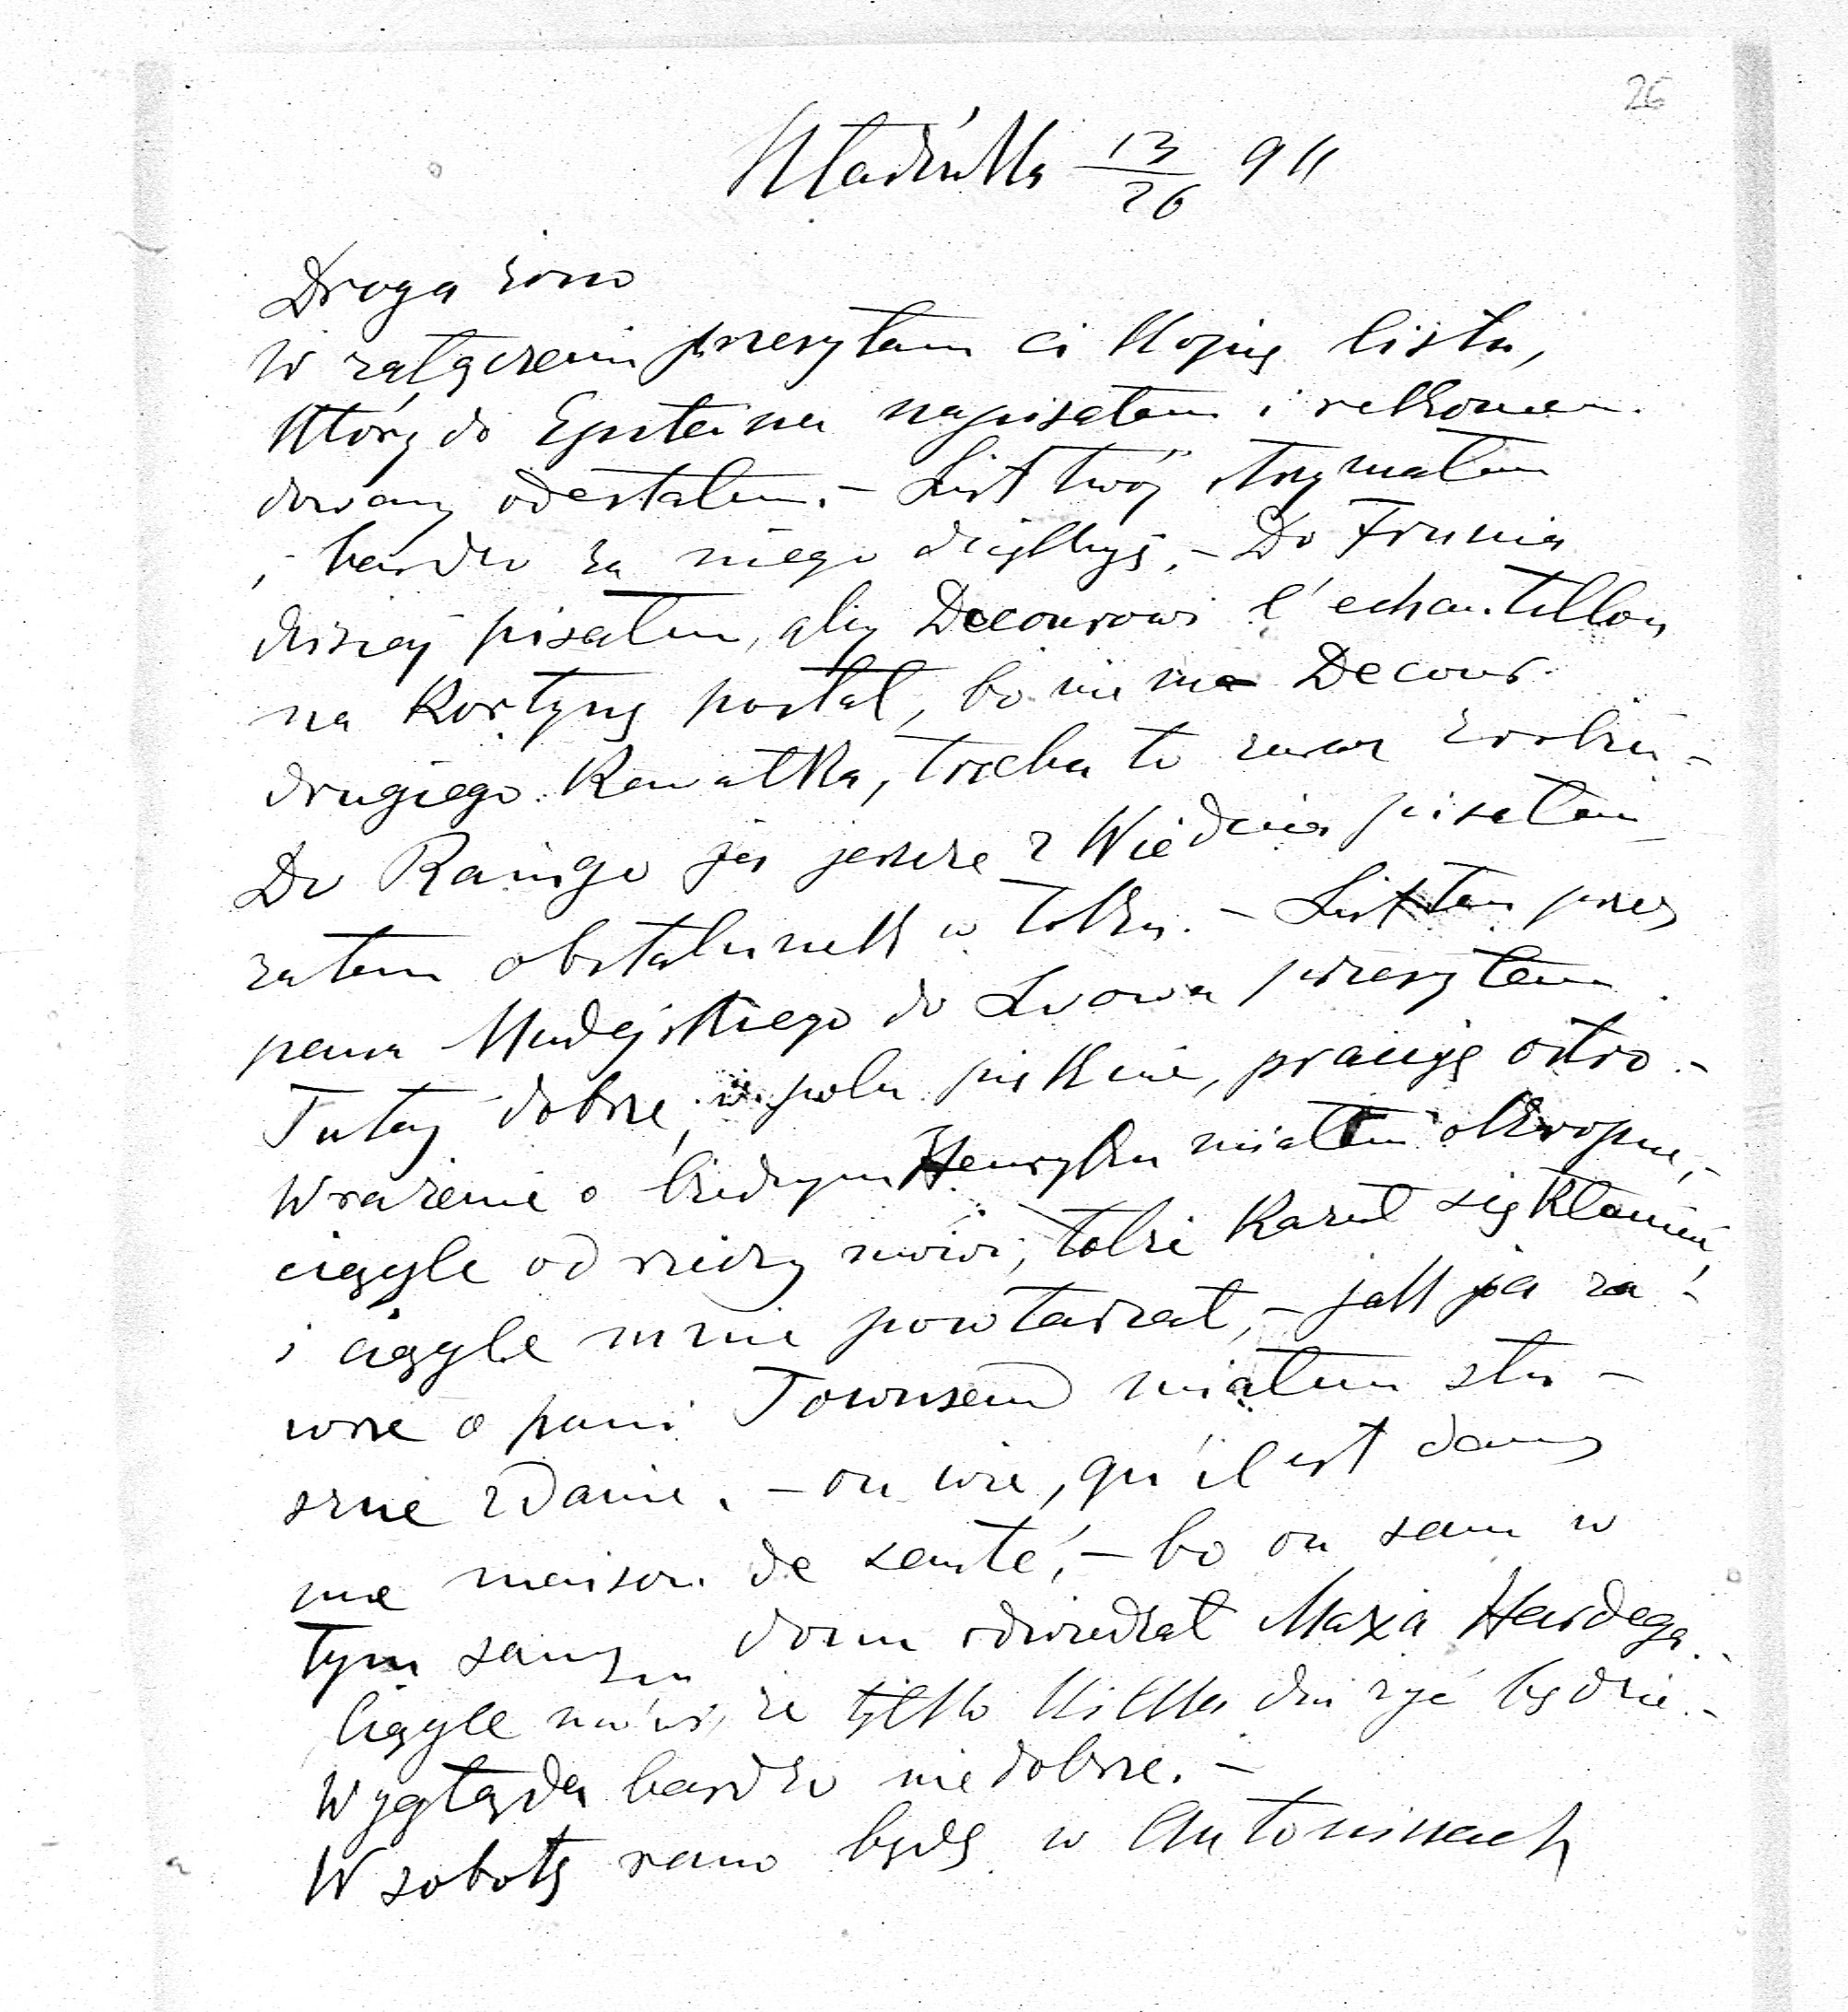 26
Kładiwka 13/26 9 11
Droga żono
W załączeniu przesyłam ci kopię listu,
który do Epsteina napisałem i rekomen-
dowany odesłałem. – List twój otrzymałem
i bardzo za niego dziękuję. – Do Frunia
dzisiaj pisałem, aby Decourowi l'echantillon
na Kortynę posłał, bo nie ma Decour
drugiego kawałka, trzeba to zaraz zrobić –
Do Rainego już jeszcze z Wiednia pisałem
zatem obstalunek w toku. – List ten przez
pana Mudejskiego do Lwowa przesyłam.
Tutaj dobrze, w polu pięknie, pracują ostro. –
Wrażenie o biednym Henryku miałem okropne, –
ciągle od rzeczy mówi, tobie kazał się kłaniać,
i ciągle mnie powtarzał, – jak ja za –
wsze o pani Townsend miałem słu –
szne zdanie. – on wie, qu'il est dans
une maison de santé, – bo on sam w
tym samym domu odwiedzał Maxa Hardega. –
Ciągle mówi, że tylko kilka dni żyć będzie. –
Wygląda bardzo niedobrze. –
W sobotę rano będę w Antoninach